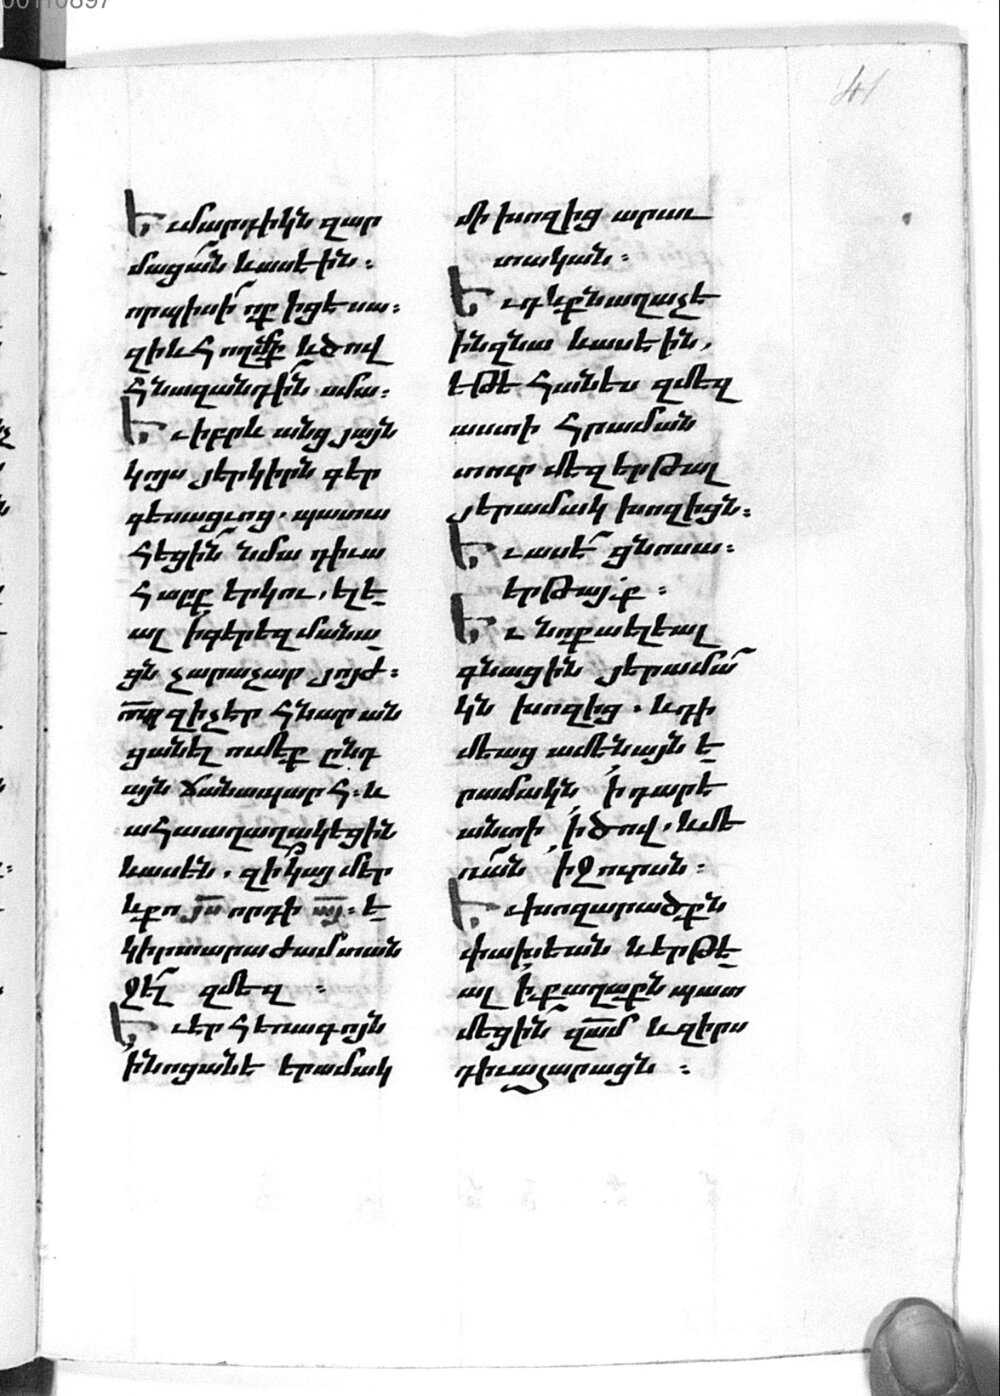 00110897
41
Եւ մարդիկն զար
մացան և ասէին։
որպիսի՞ ոք իցէ սա։
զի և հողմք և ծով
հնազանդին սմա։
Եւ իբրև անց յայն
կոյս յերկիրն գեր
գեսացւոց. պատա
հեցին նմա դիւա
հարք երկու, ելե
ալ ի գերեզմանա
ցն չարաչար յոյժ։
որպ զի չէր հնար ան
ցանել ումեք ընդ
այն ճանապարհ։ և
ահա աղաղակեցին
և ասեն. զի՞ կայ մեր
և քո յս որդի այ։ ե
կիր տարաժամ տան
ջել զմեզ ։
Եւ էր հեռագոյն
ի նոցանէ երամակ
մի խոզից արաւ
տական։
Եւ դևքն աղաչէ
ին զնա և ասէին,
եթէ հանես զմեզ
աստի հրաման
տուր մեզ երթալ
յերամակ խոզիցն։
Եւ ասէ ցնոսա։
երթայք ։
Եւ նոքա ելեալ
գնացին յերամա
կն խոզից. և դի
մեաց ամենայն ե
րամակն ի դարէ
անտի ի ծով, և մե
ռան ի ջուրսն։
Եւ խոզարածքն
փախեան և երթե
ալ ի քաղաքն պատ
մեցին զամ և զիրս
դիւաչարացն ։